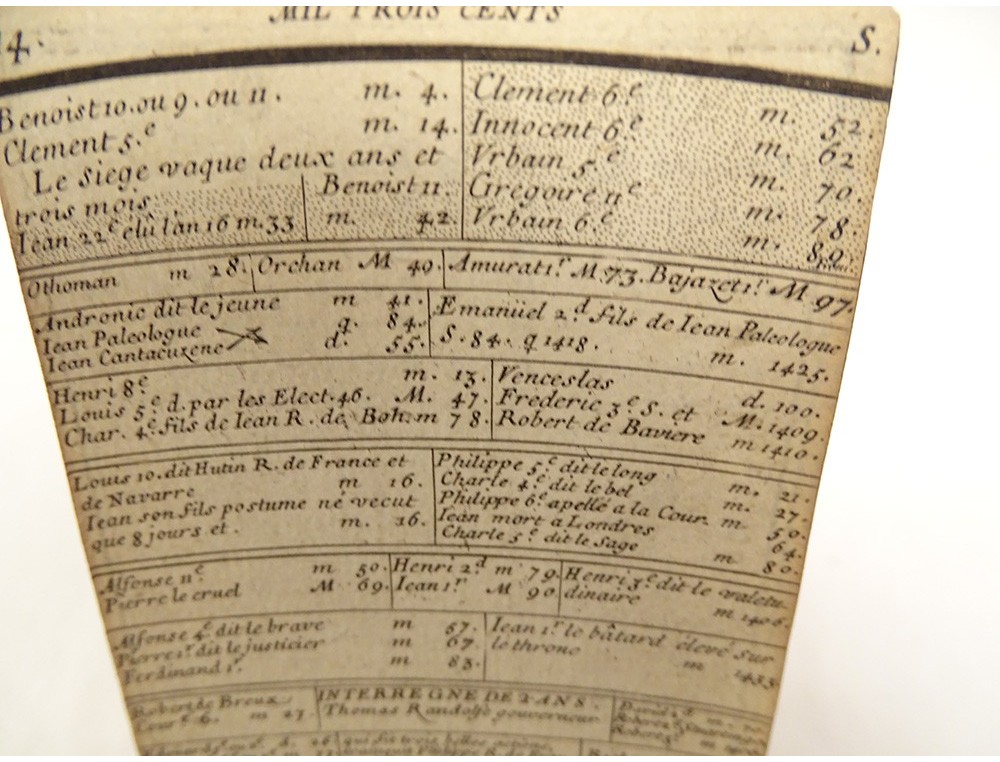 MIL TROIS CENTS
14. S.
Benoist 10. ou 9. ou 11. m. 4.
Clement 5.e m. 14.
Le Siege vaque deux ans et
trois mois.
Iean 22e élû l'an 16 m. 33
Benoist 11.
m. 42
Clement 6.e m. 52.
Innocent 6.e m. 62
Vrbain 5.e m. 70.
Gregoire 11e m. 78.
Vrbain 6.e m. 89.
Othoman m 28. Orchan M 49. Amurat 1.r M. 73. Bajazet 1.r M 97.
Andronic dit le jeune m 41.
Iean Paleologue q. 84.
Iean Cantacuzene d. 55.
Emanüel 2.d fils de Iean Paleologue
S. 84. q 1418. m. 1425.
Henri 8.e m. 13.
Louis 5.e d. par les Elect. 46. M. 47.
Char. 4.e fils de Iean R. de Boh. m 78.
Venceslas d. 100.
Frederic 3.e S. et M. 1409.
Robert de Baviere m 1410.
Louis 10. dit Hutin R. de France et
de Navarre m 16.
Iean son fils postume né vecut
que 8 jours et. m. 16.
Philippe 5.e dit le long m. 21.
Charle 4.e dit le bel m. 27.
Philippe 6.e apellé a la Cour. m 50.
Iean mort a Londres 64.
Charle 5.e dit le Sage m 80.
Alfonse 11.e m 50.
Pierre le cruel M 69.
Henri 2.d m 79.
Iean 1.r M 90.
Henri 3.e dit le valetu-
dinaire m 1406.
Alfonse 4.e dit le brave m 57.
Pierre 1.r dit le justicier m 67.
Ferdinand 1.r m 83.
Iean 1.r le bâtard élevé sur
le throne m 1433.
Robert de Breux
Cour.é 6. m 27.
INTERREGNE DE 2 ANS.
Thomas Randolfe gouverneur
David 2.d m.
Robert
Robert